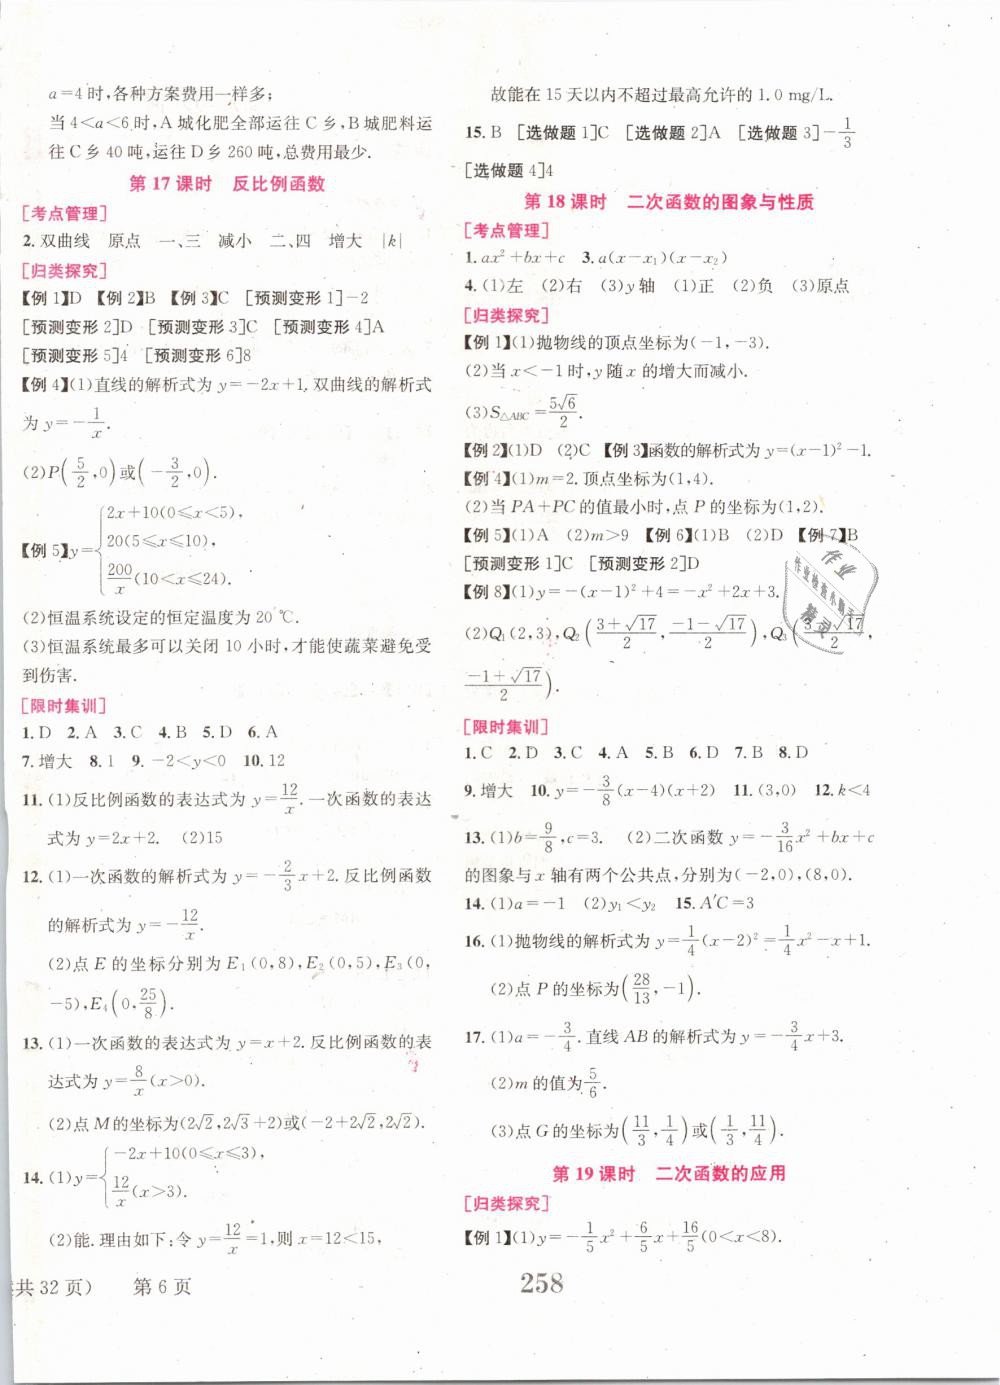 a=4时,各种方案费用一样多;
当 4<a<6 时,A 城化肥全部运往 C 乡,B 城肥料运
往 C 乡 40 吨,运往 D 乡 260 吨,总费用最少.
第 17 课时　反比例函数
[考点管理]
2. 双曲线　原点　一、三　减小　二、四　增大　|k|
[归类探究]
【例 1】D 【例 2】B 【例 3】C [预测变形 1]－2
[预测变形 2]D [预测变形 3]C [预测变形 4]A
[预测变形 5]4 [预测变形 6]8
【例 4】(1)直线的解析式为 y=－2x+1. 双曲线的解析式
为 y=－1/x.
(2)P(5/2,0)或(－3/2,0).
【例 5】y={2x+10(0≤x<5),
20(5≤x≤10),
200/x(10<x≤24).
(2)恒温系统设定的恒定温度为 20 ℃.
(3)恒温系统最多可以关闭 10 小时,才能使蔬菜避免受
到伤害.
[限时集训]
1. D 2. A 3. C 4. B 5. D 6. A
7. 增大 8. 1 9. －2<y<0 10. 12
11. (1)反比例函数的表达式为 y=12/x. 一次函数的表达
式为 y=2x+2. (2)15
12. (1)一次函数的解析式为 y=－2/3x+2. 反比例函数
的解析式为 y=－12/x.
(2)点 E 的坐标分别为 E₁(0,8),E₂(0,5),E₃(0,
－5),E₄(0,25/8).
13. (1)一次函数的表达式为 y=x+2. 反比例函数的表
达式为 y=8/x(x>0).
(2)点 M 的坐标为(2√2,2√3+2)或(－2+2√2,2√2).
14. (1)y={－2x+10(0≤x≤3),
12/x(x>3).
(2)能. 理由如下:令 y=12/x=1,则 x=12<15,
共 32 页)　第 6 页
故能在 15 天以内不超过最高允许的 1.0 mg/L.
15. B [选做题 1]C [选做题 2]A [选做题 3]－1/3
[选做题 4]4
第 18 课时　二次函数的图象与性质
[考点管理]
1. ax²+bx+c 3. a(x－x₁)(x－x₂)
4. (1)左 (2)右 (3)y 轴 (1)正 (2)负 (3)原点
[归类探究]
【例 1】(1)抛物线的顶点坐标为(－1,－3).
(2)当 x<－1 时,y 随 x 的增大而减小.
(3)S△ABC=5√6/2.
【例 2】(1)D (2)C 【例 3】函数的解析式为 y=(x－1)²－1.
【例 4】(1)m=2. 顶点坐标为(1,4).
(2)当 PA+PC 的值最小时,点 P 的坐标为(1,2).
【例 5】(1)A (2)m>9 【例 6】(1)B (2)D 【例 7】B
[预测变形 1]C [预测变形 2]D
【例 8】(1)y=－(x－1)²+4=－x²+2x+3.
(2)Q₁(2,3),Q₂((3+√17)/2,(－1－√17)/2),Q₃((3－√17)/2,
(－1+√17)/2).
[限时集训]
1. C 2. D 3. C 4. A 5. B 6. D 7. B 8. D
9. 增大 10. y=－3/8(x－4)(x+2) 11. (3,0) 12. k<4
13. (1)b=9/8,c=3. (2)二次函数 y=－3/16x²+bx+c
的图象与 x 轴有两个公共点,分别为(－2,0),(8,0).
14. (1)a=－1 (2)y₁<y₂ 15. A′C=3
16. (1)抛物线的解析式为 y=1/4(x－2)²=1/4x²－x+1.
(2)点 P 的坐标为(28/13,－1).
17. (1)a=－3/4. 直线 AB 的解析式为 y=－3/4x+3.
(2)m 的值为5/6.
(3)点 G 的坐标为(11/3,1/4)或(1/3,11/4).
第 19 课时　二次函数的应用
[归类探究]
【例 1】(1)y=－1/5x²+6/5x+16/5(0<x<8).
258
作业
作业检查小助手
精灵